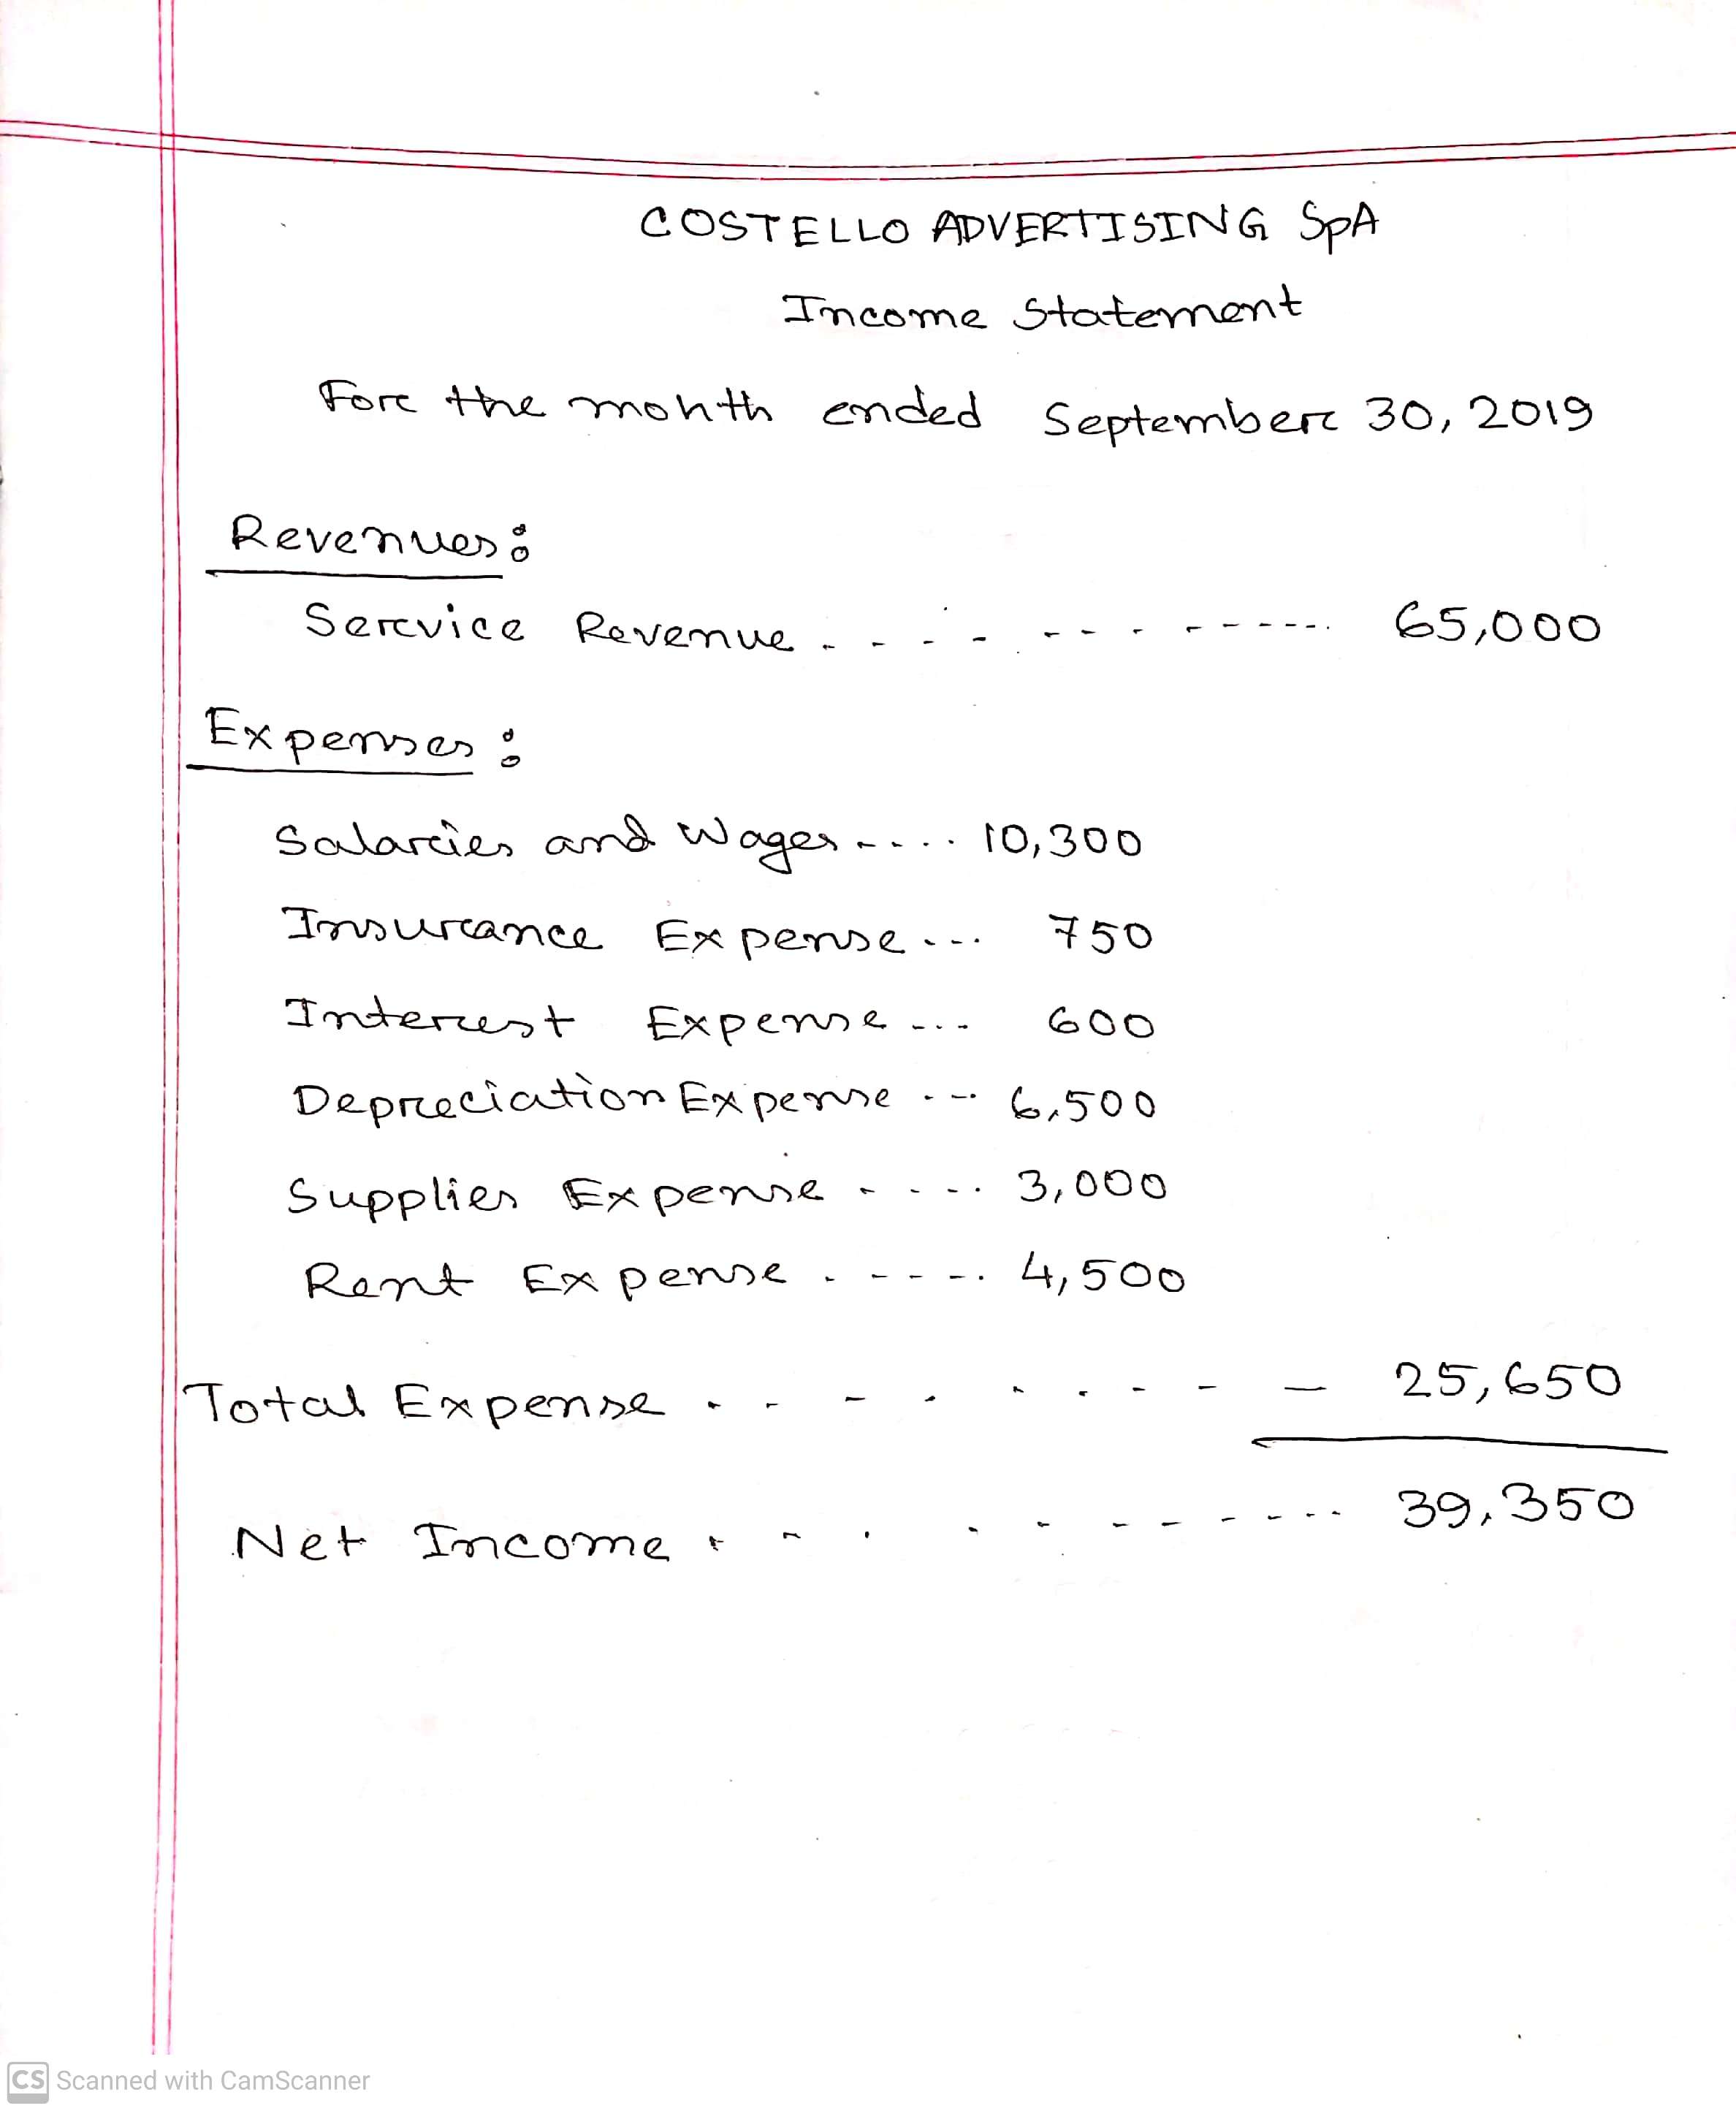 COSTELLO ADVERTISING SpA
Income Statement
For the month ended September 30, 2019
Revenues:
Service Revenue . - . - . - - . - - - - - . 65,000
Expenses:
Salaries and Wages ..... 10,300
Insurance Expense ... 750
Interest Expense ... 600
Depreciation Expense ... 6,500
Supplies Expense ..... 3,000
Rent Expense . - - - - . 4,500
Total Expense . . - . - . - - - 25,650
Net Income . - . . - - - - - - . . 39,350
CS Scanned with CamScanner